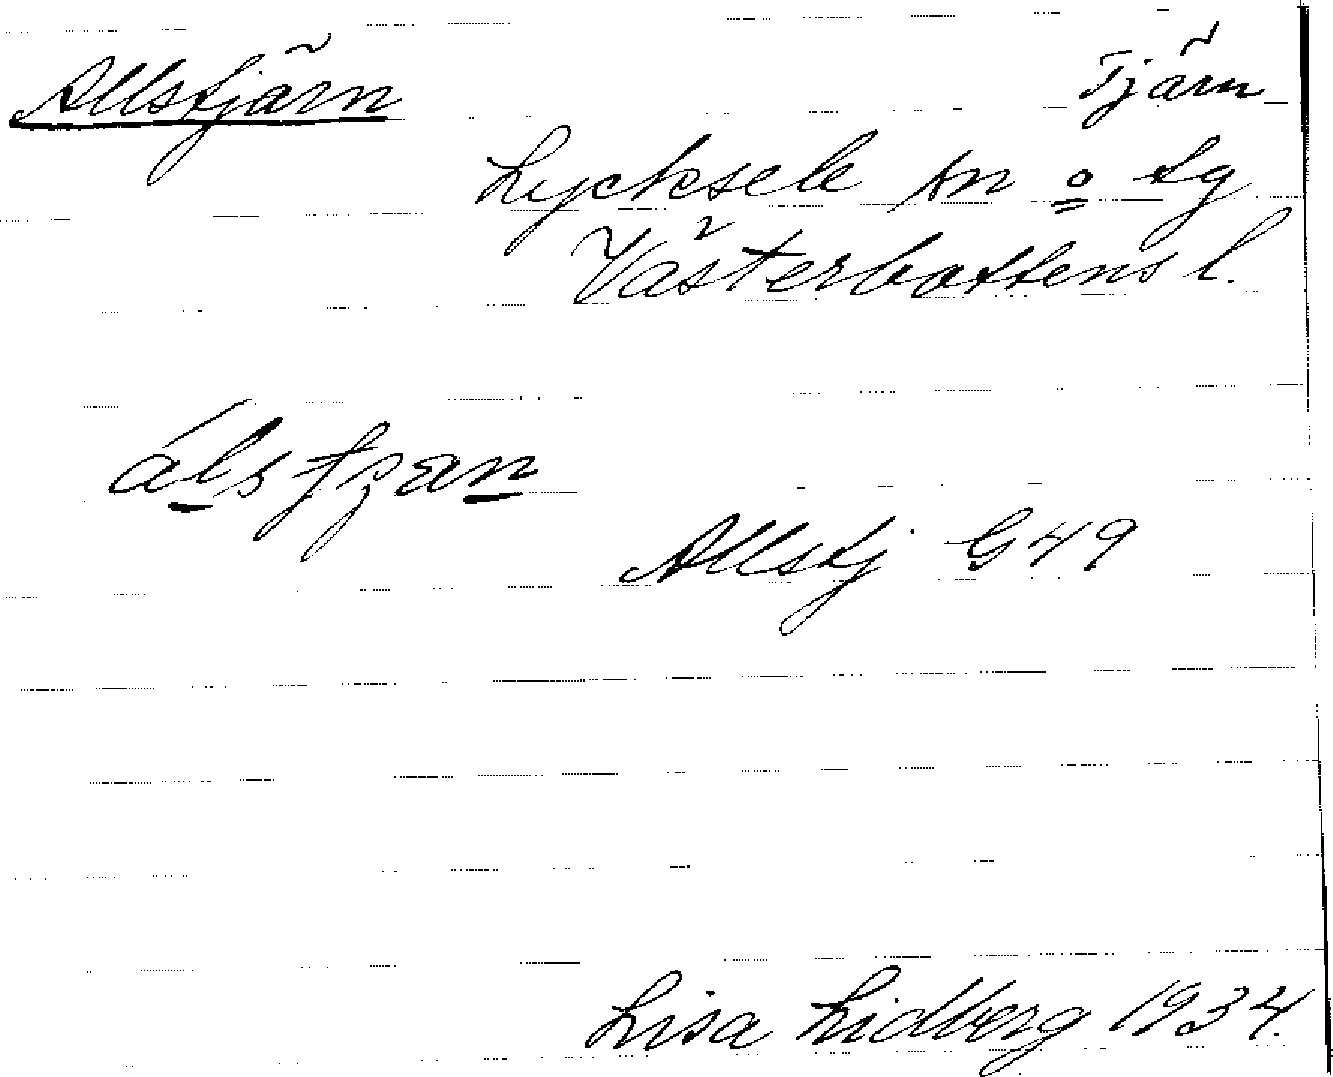 Allstjärn Tjärn
Lycksele sn o tg
Västerbottens l.
Allstj G49
Lisa Lidberg 1934.